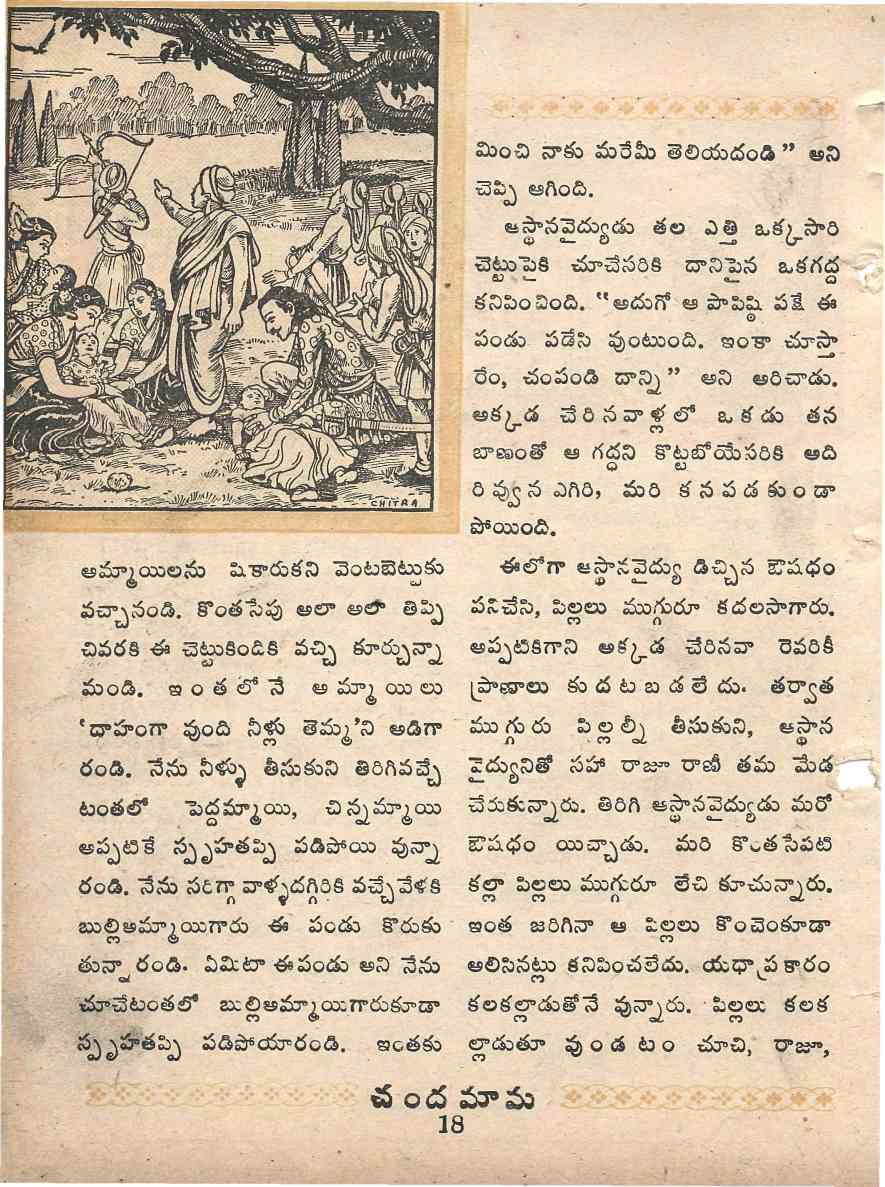 CHITRA
అమ్మాయిలను షికారుకని వెంటబెట్టుకు
వచ్చానండి. కొంతసేపు అలా అలా తిప్పి
చివరకి ఈ చెట్టుకిందికి వచ్చి కూర్చున్నా
మండి. ఇంతలోనే అమ్మాయిలు
'దాహంగా వుంది నీళ్లు తెమ్మ'ని అడిగా
రండి. నేను నీళ్ళు తీసుకుని తిరిగివచ్చే
టంతలో పెద్దమ్మాయి, చిన్నమ్మాయి
అప్పటికే స్పృహతప్పి పడిపోయి వున్నా
రండి. నేను సరిగ్గా వాళ్ళదగ్గిరికి వచ్చేవేళకి
బుల్లిఅమ్మాయిగారు ఈ పండు కొరుకు
తున్నారండి. ఏమిటా ఈపండు అని నేను
చూచేటంతలో బుల్లిఅమ్మాయిగారుకూడా
స్పృహతప్పి పడిపోయారండి. ఇంతకు
మించి నాకు మరేమీ తెలియదండి" అని
చెప్పి ఆగింది.
ఆస్థానవైద్యుడు తల ఎత్తి ఒక్కసారి
చెట్టుపైకి చూచేసరికి దానిపైన ఒకగద్ద
కనిపించింది. "అదుగో ఆ పాపిష్ఠి పక్షే ఈ
పండు పడేసి వుంటుంది. ఇంకా చూస్తా
రేం, చంపండి దాన్ని" అని అరిచాడు.
అక్కడ చేరినవాళ్లలో ఒకడు తన
బాణంతో ఆ గద్దని కొట్టబోయేసరికి అది
రివ్వున ఎగిరి, మరి కనపడకుండా
పోయింది.
ఈలోగా ఆస్థానవైద్యు డిచ్చిన ఔషధం
పనిచేసి, పిల్లలు ముగ్గురూ కదలసాగారు.
అప్పటికిగాని అక్కడ చేరినవా రెవరికీ
ప్రాణాలు కుదటబడలేదు. తర్వాత
ముగ్గురు పిల్లల్నీ తీసుకుని, ఆస్థాన
వైద్యునితో సహా రాజూ రాణీ తమ మేడ
చేరుకున్నారు. తిరిగి ఆస్థానవైద్యుడు మరో
ఔషధం యిచ్చాడు. మరి కొంతసేపటి
కల్లా పిల్లలు ముగ్గురూ లేచి కూచున్నారు.
ఇంత జరిగినా ఆ పిల్లలు కొంచెంకూడా
అలిసినట్లు కనిపించలేదు. యధాప్రకారం
కలకల్లాడుతోనే వున్నారు. పిల్లలు కలక
ల్లాడుతూ వుండటం చూచి, రాజూ,
చందమామ
18